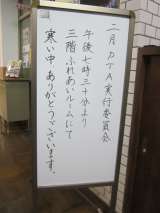 二月 PTA実行委員会
午後七時三十分より
三階 ふれあいルームにて
寒い中 ありがとうございます。